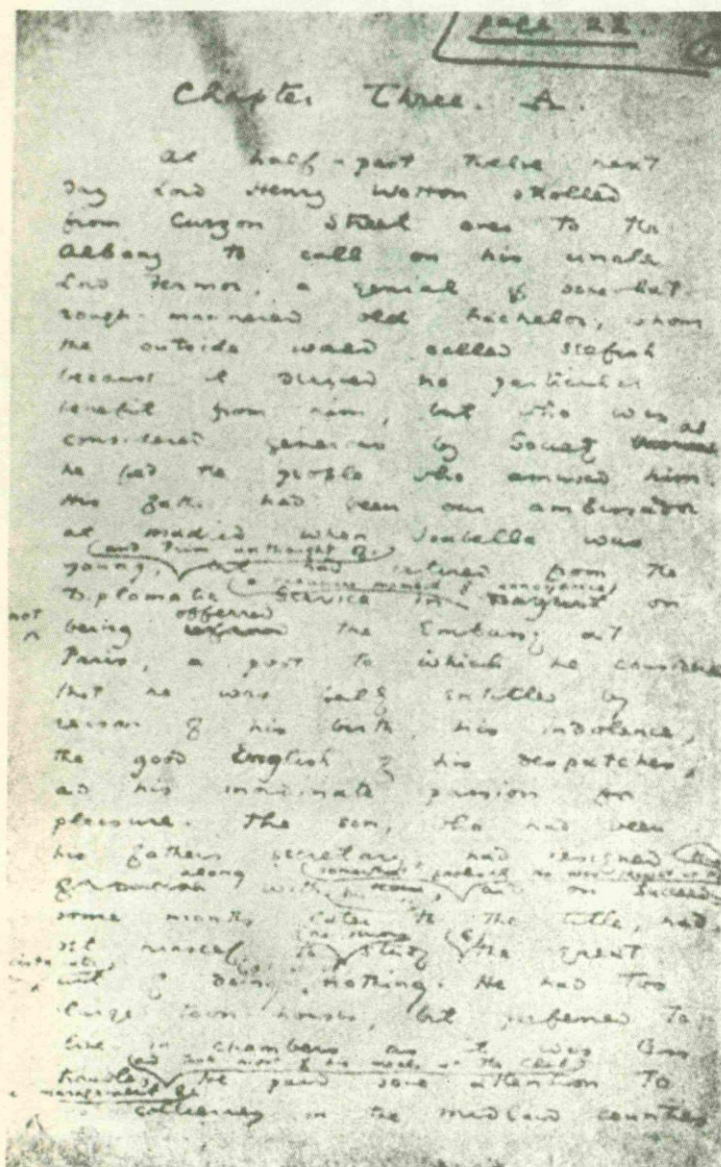 page 22.
Chapter Three. A.
At half-past twelve next
day Lord Henry Wotton strolled
from Curzon Street over to the
Albany to call on his uncle
Lord Fermor, a genial if somewhat
rough-mannered old bachelor, whom
the outside world called selfish
because it derived no particular
benefit from him, but who was
considered generous by Society as
he fed the people who amused him.
His father had been our ambassador
at Madrid when Isabella was
(and Prim unthought of)
young, but had retired from the
(a capricious moment of annoyance)
Diplomatic Service in on
not offered
being the Embassy at
Paris, a post to which he considered
that he was fully entitled by
reason of his birth, his indolence,
the good English of his despatches,
and his inordinate passion for
pleasure. The son, who had been
his father's secretary, had resigned
along
with , and on succeeding
some months later to the title, had
set himself to the serious study of the great
aristocratic
art of doing nothing. He had two
large town houses, but preferred to
live in chambers as it was less
(and took most of his meals at the Club)
trouble. He paid some attention to
management of
collieries in the Midland counties